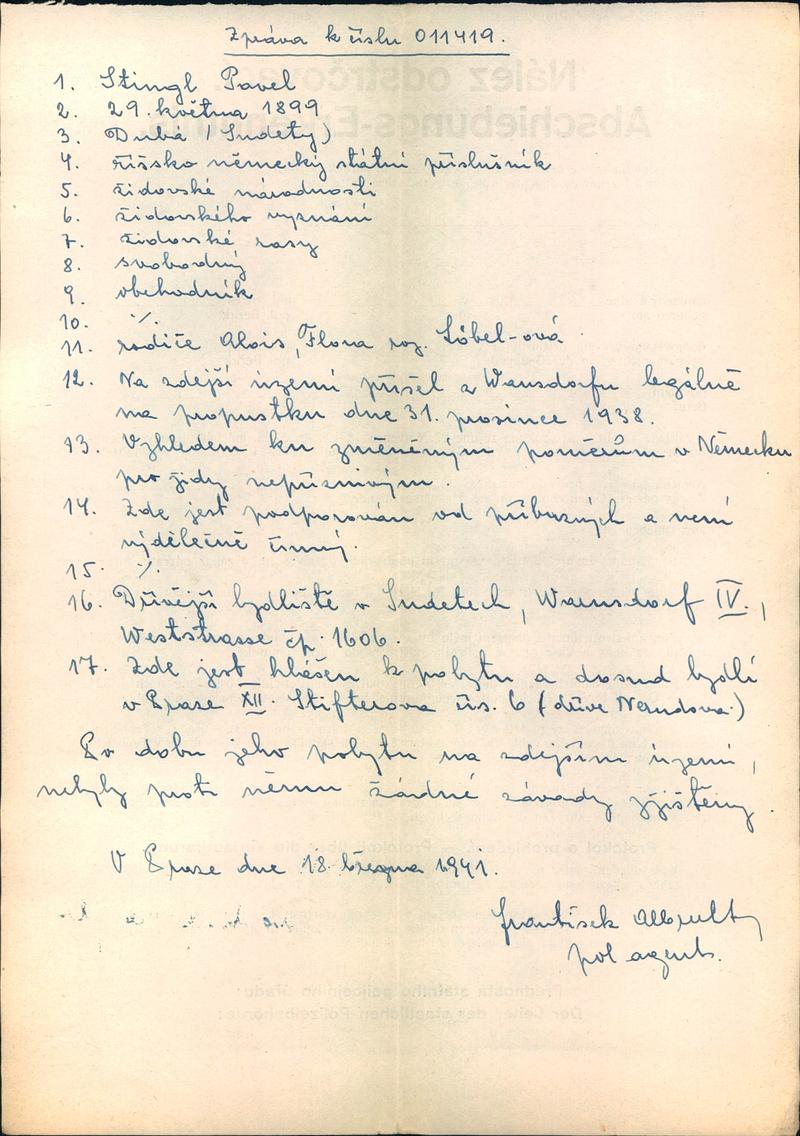 Zpráva k číslu 011419.
1. Stingl Pavel
2. 29. května 1899
3. Dubá (Sudety)
4. říšsko německý státní příslušník
5. židovské národnosti
6. židovského vyznání
7. židovské rasy
8. svobodný
9. obchodník
10. ·/.
11. rodiče Alois, Flora roz. Löbel-ová
12. Na zdejší území přišel z Warnsdorfu legálně
na propustku dne 31. prosince 1938.
13. Vzhledem ku změněným poměrům v Německu
pro židy nepříznivým.
14. Zde jest podporován od příbuzných a není
výdělečně činný.
15. ·/.
16. Dřívější bydliště v Sudetech, Warnsdorf IV.,
Weststrasse čp. 1606.
17. Zde jest hlášen k pobytu a dosud bydlí
v Praze XII. Stifterova čís. 6 (dříve Nerudova)
Po dobu jeho pobytu na zdejším území,
nebyly proti němu žádné závady zjištěny.
V Praze dne 18. března 1941.
František
pol. agent.
Nález odstrčovací.
Abschiebungs-Erkenntnis.
Přednosta státního policejního úřadu:
Der Leiter der staatlichen Polizeibehörde: